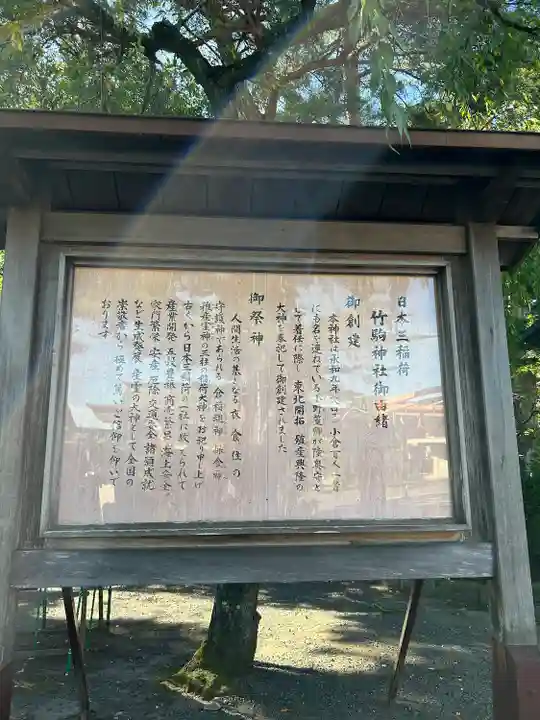 日本三稲荷
竹駒神社御由緒
御創建
本神社は承和九年(八四二)小倉百人一首
にも名を連ねている小野篁卿が陸奥守と
して着任に際し 東北開拓 殖産興隆の
大神を奉祀して御創建されました
御祭神
人間生活の基となる 衣 食 住の
守護神であられる 倉稲魂神 保食神
稚産霊神の三柱の稲荷大神をお祀り申し上げ
古くから日本三稲荷の一社に数えられて
産業開発 五穀豊穣 商売繁昌 海上安全
家門繁栄 安産 厄除 交通安全 諸願成就
など 生成発展 産霊の大神として全国の
崇敬者から 極めて篤いご信仰を仰いで
おります